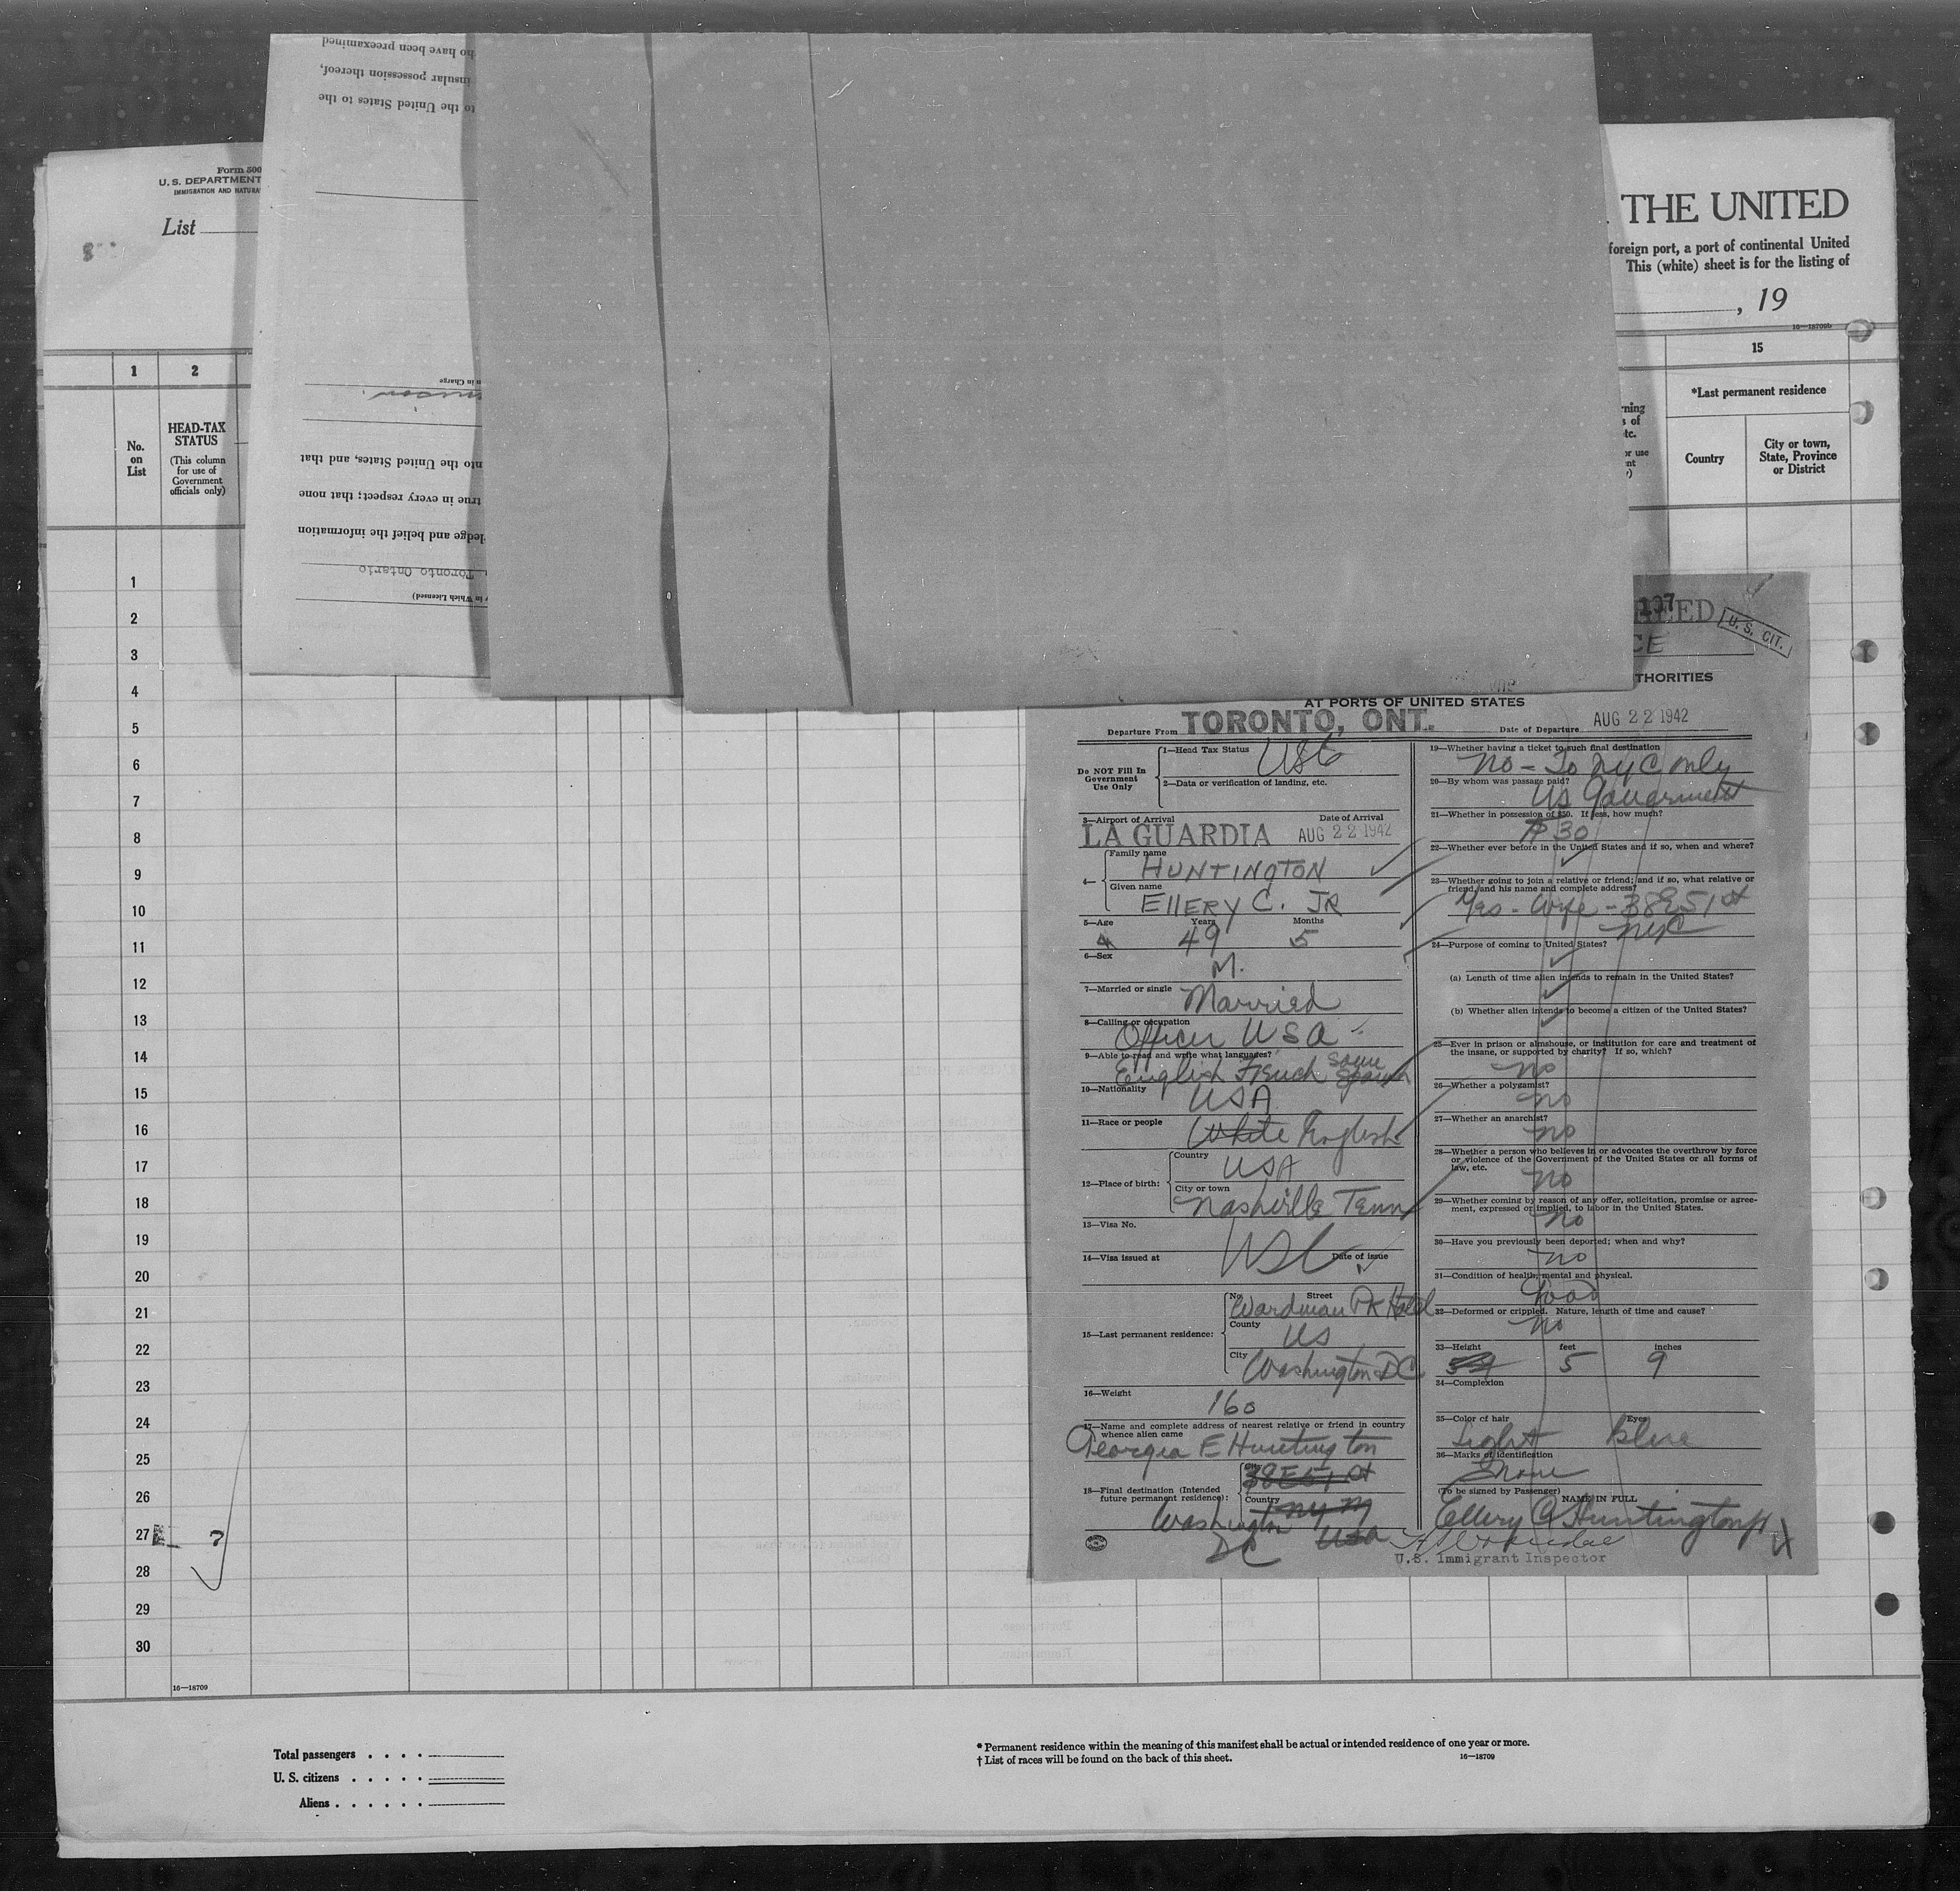 ho have been preexamined
insular possession thereof,
to the United States to the
in Charge
nto the United States, and that
true in every respect; that none
ledge and belief the information
Toronto Ontario
in Which Licensed)
Form 500
U. S. DEPARTMENT
IMMIGRATION AND NATURA
List
THE UNITED
foreign port, a port of continental United
This (white) sheet is for the listing of
, 19
16—18709b
1
2
15
No.
on
List
HEAD-TAX
STATUS
(This column
for use of
Government
officials only)
*Last permanent residence
Country
City or town,
State, Province
or District
1
2
3
4
5
6
7
8
9
10
11
12
13
14
15
16
17
18
19
20
21
22
23
24
25
26
27 ?
28
29
30
16—18709
U. S. CIT.
THORITIES
AT PORTS OF UNITED STATES
Departure From TORONTO, ONT.
Date of Departure AUG 22 1942
Do NOT Fill In
Government
Use Only
1—Head Tax Status USC
2—Data or verification of landing, etc.
3—Airport of Arrival
Date of Arrival
LA GUARDIA AUG 22 1942
4—
Family name
HUNTINGTON
Given name
ELLERY C. JR
5—Age Years Months
4 49 5
6—Sex
M.
7—Married or single Married
8—Calling or occupation
Officer USA
9—Able to read and write what languages?
English French some Spanish
10—Nationality
USA
11—Race or people White English
12—Place of birth:
Country
USA
City or town
Nashville Tenn
13—Visa No.
USC
14—Visa issued at
Date of issue
15—Last permanent residence:
No. Street
Wardman Pk Hotel
County
US
City
Washington DC
16—Weight
160
17—Name and complete address of nearest relative or friend in country
whence alien came
Georgia E Huntington
18—Final destination (Intended
future permanent residence):
38 E 51 St
Country
NY NY
Washington
DC USA
19—Whether having a ticket to such final destination
No - To NYC only
20—By whom was passage paid?
US Government
21—Whether in possession of $50. If less, how much?
$30
22—Whether ever before in the United States and if so, when and where?
23—Whether going to join a relative or friend; and if so, what relative or
friend, and his name and complete address?
Yes - Wife - 38 E 51 St
NYC
24—Purpose of coming to United States?
(a) Length of time alien intends to remain in the United States?
(b) Whether alien intends to become a citizen of the United States?
25—Ever in prison or almshouse, or institution for care and treatment of
the insane, or supported by charity? If so, which?
No
26—Whether a polygamist?
No
27—Whether an anarchist?
No
28—Whether a person who believes in or advocates the overthrow by force
or violence of the Government of the United States or all forms of
law, etc.
No
29—Whether coming by reason of any offer, solicitation, promise or agree-
ment, expressed or implied, to labor in the United States.
No
30—Have you previously been deported; when and why?
No
31—Condition of health, mental and physical.
Good
32—Deformed or crippled. Nature, length of time and cause?
No
33—Height feet inches
5 9
34—Complexion
35—Color of hair Eyes
Light Blue
36—Marks of identification
None
(To be signed by Passenger)
NAME IN FULL
Ellery C Huntington Jr
U.S. Immigrant Inspector
Total passengers . . . .
U. S. citizens . . . . .
Aliens . . . . . .
* Permanent residence within the meaning of this manifest shall be actual or intended residence of one year or more.
† List of races will be found on the back of this sheet.
16—18709